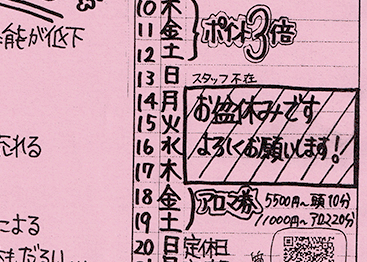 機能が低下
荒れる
による
もだるい
10 木
11 金 ポイント3倍
12 土
13 日 スタッフ不在
14 月 お盆休みです
15 火
16 水 よろしくお願いします!
17 木
18 金 アロマ券 5500円〜頭10分
19 土 11000円〜アロマ20分
20 日 定休日